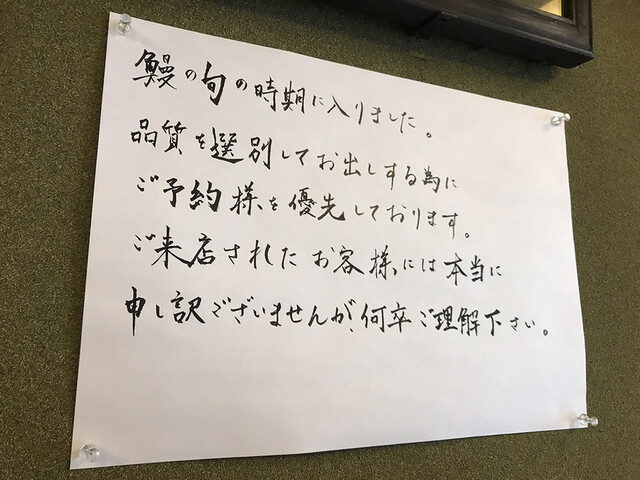 鰻の旬の時期に入りました。
品質を選別してお出しする為に
ご予約様を優先しております。
ご来店されたお客様には本当に
申し訳ございませんが、何卒ご理解下さい。